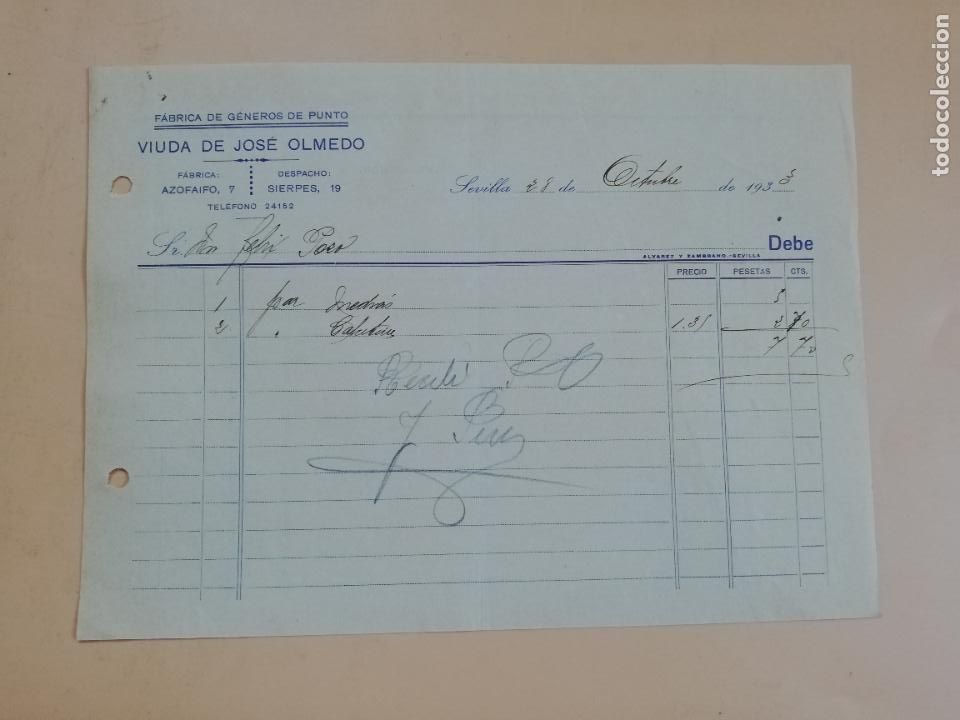 FÁBRICA DE GÉNEROS DE PUNTO
VIUDA DE JOSÉ OLMEDO
FÁBRICA: DESPACHO:
AZOFAIFO, 7 SIERPES, 19
TELÉFONO 24152
Sevilla 28 de Octubre de 193
Sr. Don Felix Poso Debe
ALVAREZ Y ZAMBRANO.-SEVILLA
PRECIO PESETAS CTS.
1 par medias 5
2 " Calcetines 1.35 2 70
7 70
Recibí
todocoleccion